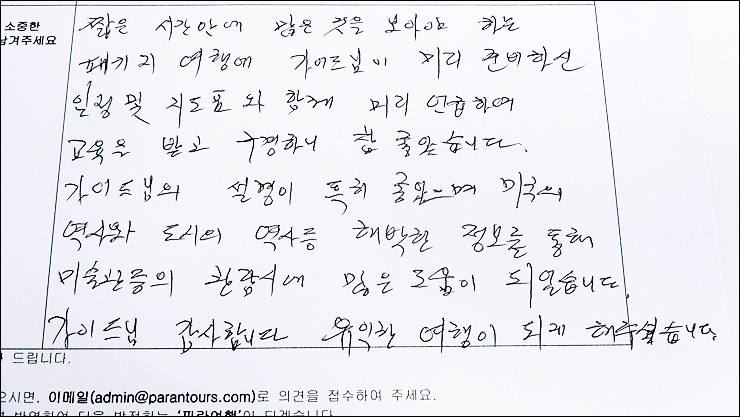 소중한
남겨주세요
짧은 시간안에 많은 것을 보아야 하는
패키지 여행에 가이드님이 미리 준비하신
일정 및 지도표와 함께 미리 연습하여
교육을 받고 구경하니 참 좋았습니다.
가이드님의 설명이 특히 좋았으며 미국의
역사와 도시의 역사등 해박한 정보를 통해
미술관등의 관람시에 많은 도움이 되었습니다.
가이드님 감사합니다 유익한 여행이 되게 해주셨습니다.
드립니다.
으시면, 이메일(admin@parantours.com)로 의견을 접수하여 주세요.
반영하여 더욱 발전하는 '파란여행'이 되겠습니다